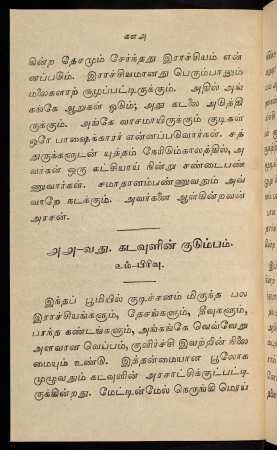 களஅ
கின்ற தேசமும் சேர்ந்தது இராச்சியம் என்
னப்படும். இராச்சியமானது பெரும்பாலும்
மலைகளாற் சூழப்பட்டிருக்கும். அதில் அங்
கங்கே ஆறுகள் ஒடும்; அது கடலை அடுத்தி
ருக்கும். அங்கே வாசமாயிருக்கும் குடிகள்
ஒரே பாஷைக்காரர் என்னப்படுவார்கள். சத்
துருக்களுடன் யுத்தம் நேரிடுங்காலத்தில், அ
வர்கள் ஒரு கட்சியாய் நின்று சண்டைபண்
ணுவார்கள். சமாதானம்பண்ணுவதும் அவ்
வாறே நடக்கும். அவர்களை ஆள்கின்றவன்
அரசன்.
அஅ-வது. கடவுளின் குடும்பம்.
உம்-பிரிவு.
இந்தப் பூமியில் குடிச்சனம் மிகுந்த பல
இராச்சியங்களும், தேசங்களும், தீவுகளும்,
பரந்த கண்டங்களும், அங்கங்கே வெவ்வேறு
அளவான வெப்பம், குளிர்ச்சி இவற்றின் நிலை
மையும் உண்டு. இத்தன்மையான பூலோக
முழுவதும் கடவுளின் அரசாட்சிக்குட்பட்டி
ருக்கின்றது. மேட்டின்மேல் நெருங்கி மொய்